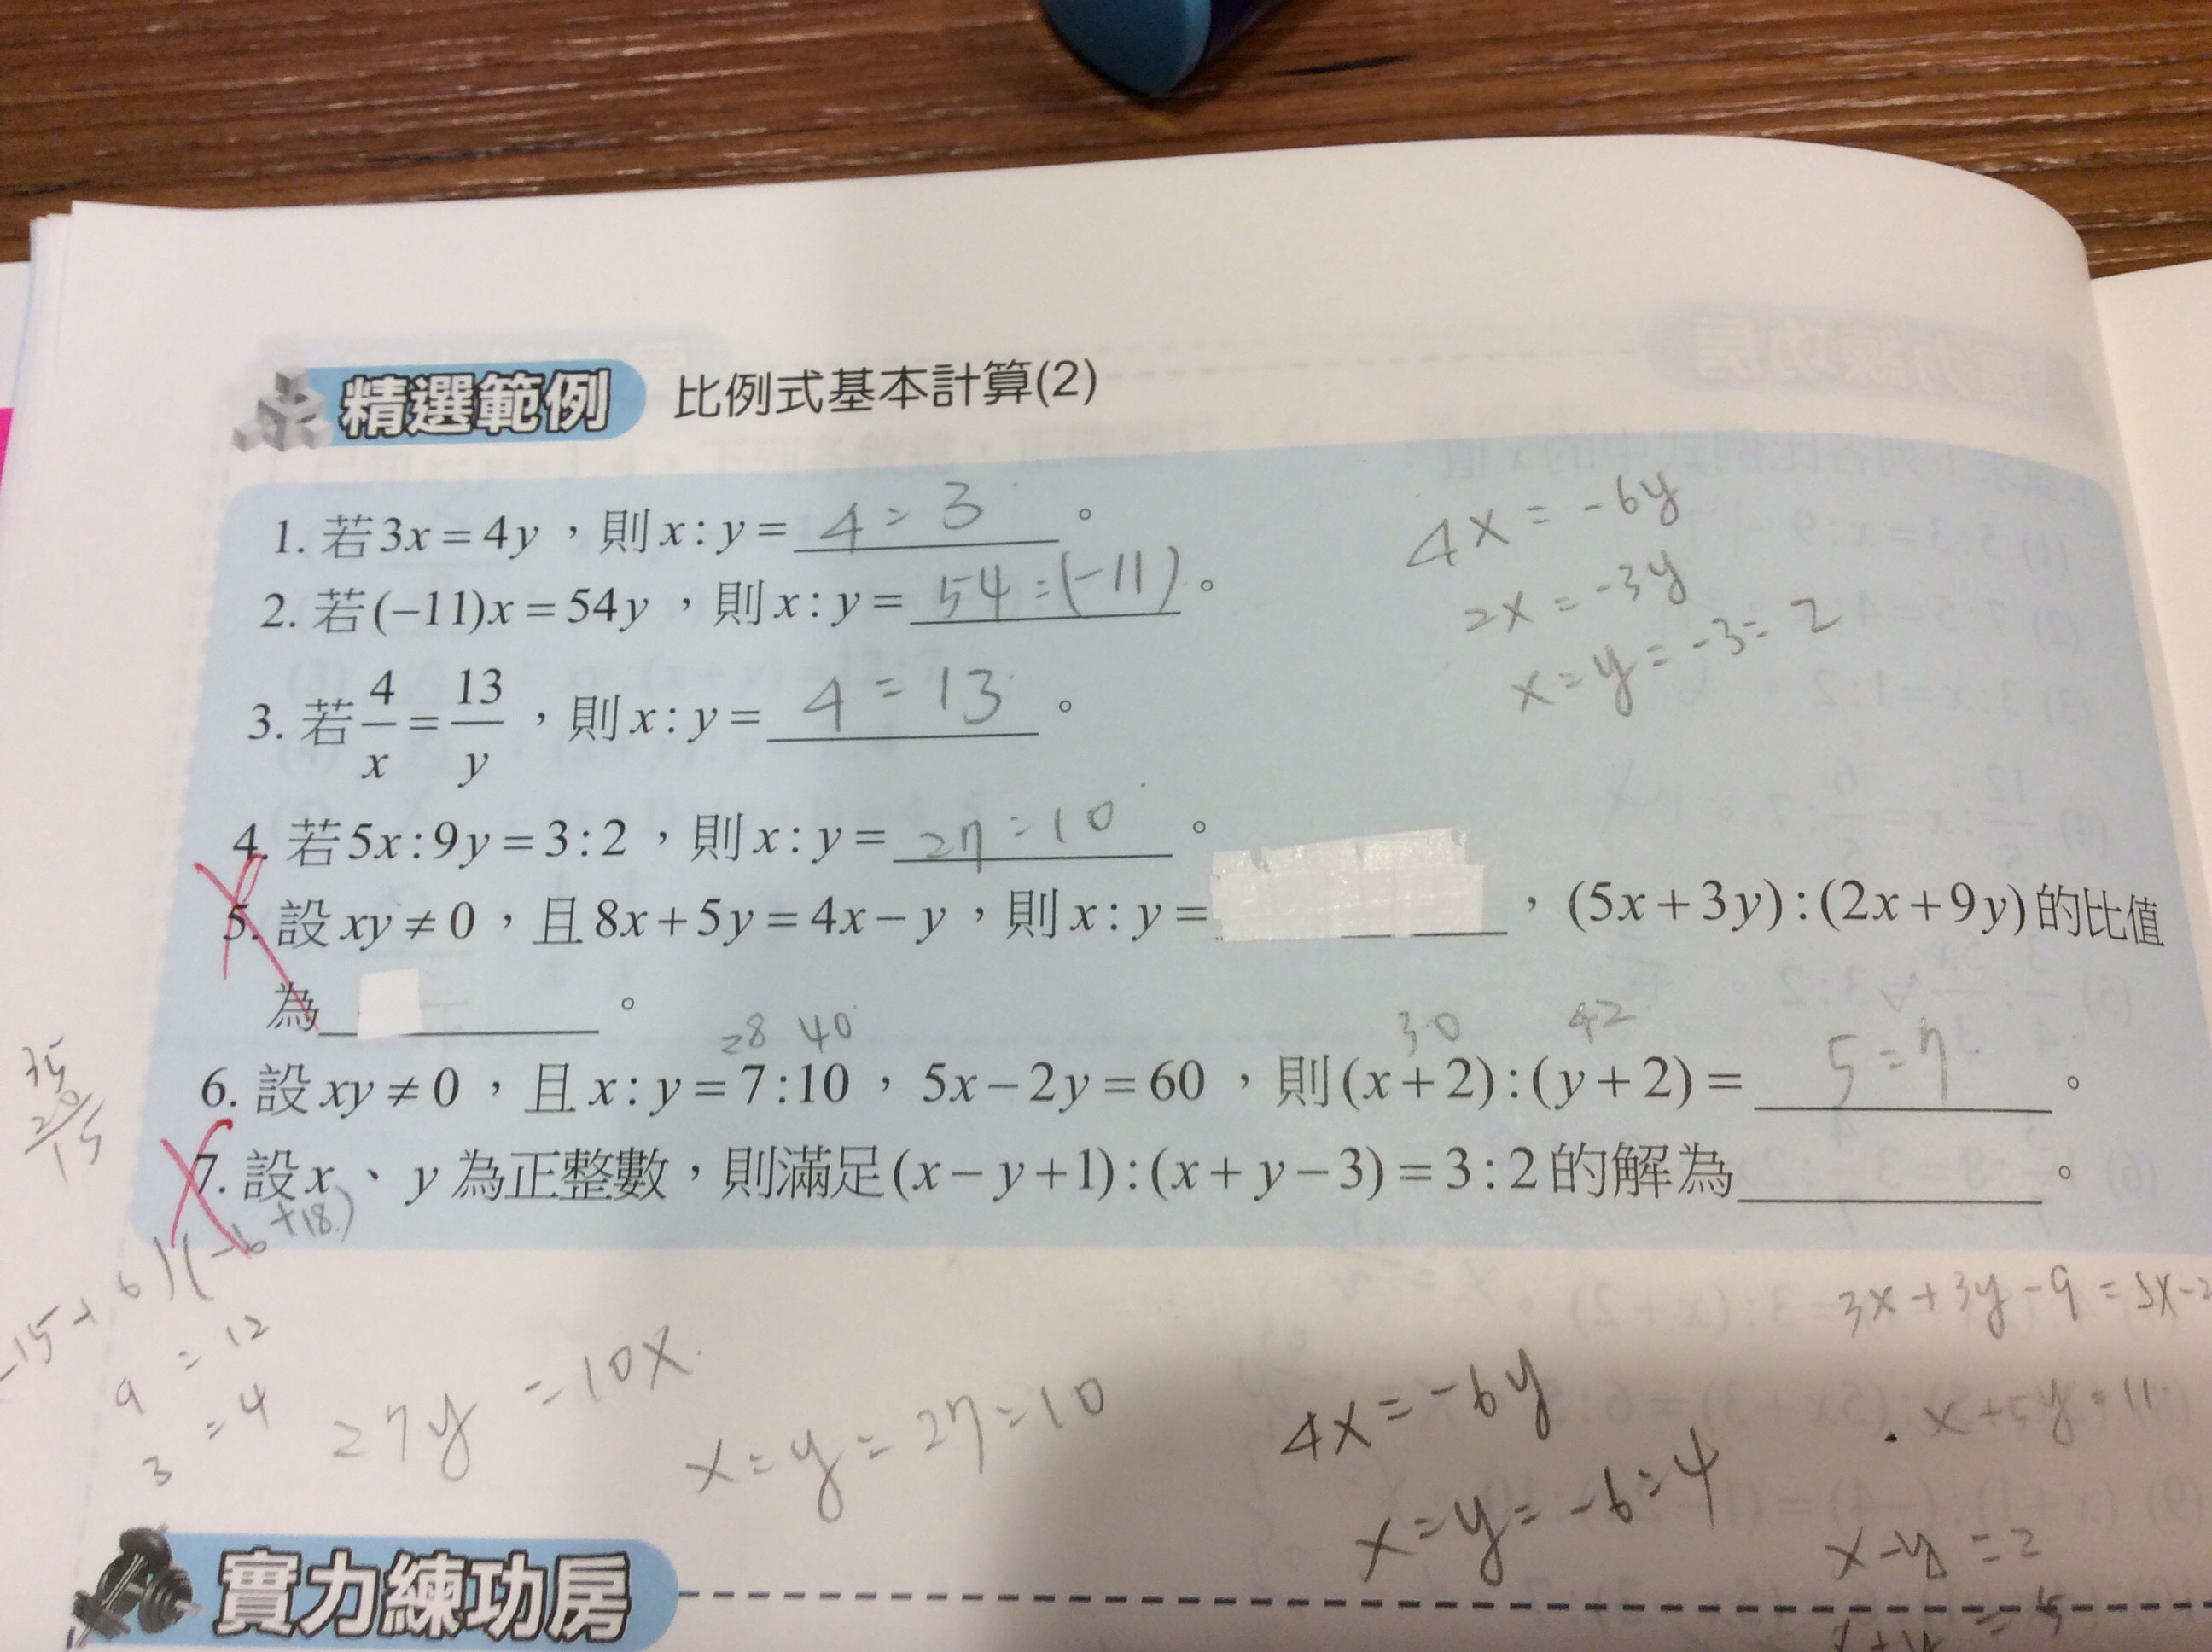 精選範例 比例式基本計算(2)
1. 若3x=4y，則x:y= 4:3 。
4x=-6y
2. 若(-11)x=54y，則x:y= 54:(-11) 。
2x=-3y
x:y=-3:2
3. 若4/x=13/y，則x:y= 4:13 。
4. 若5x:9y=3:2，則x:y= 27:10 。
5. 設xy≠0，且8x+5y=4x-y，則x:y=______，(5x+3y):(2x+9y)的比值
為______。
28 40 30 42
6. 設xy≠0，且x:y=7:10，5x-2y=60，則(x+2):(y+2)= 5:7 。
35
20
15
7. 設x、y為正整數，則滿足(x-y+1):(x+y-3)=3:2的解為______。
-15+6)(-6+18)
9:12
3:4
27y=10x
x:y=27:10
4x=-6y
x:y=-6:4
3x+3y-9=
x+5y=11
x-y=2
實力練功房